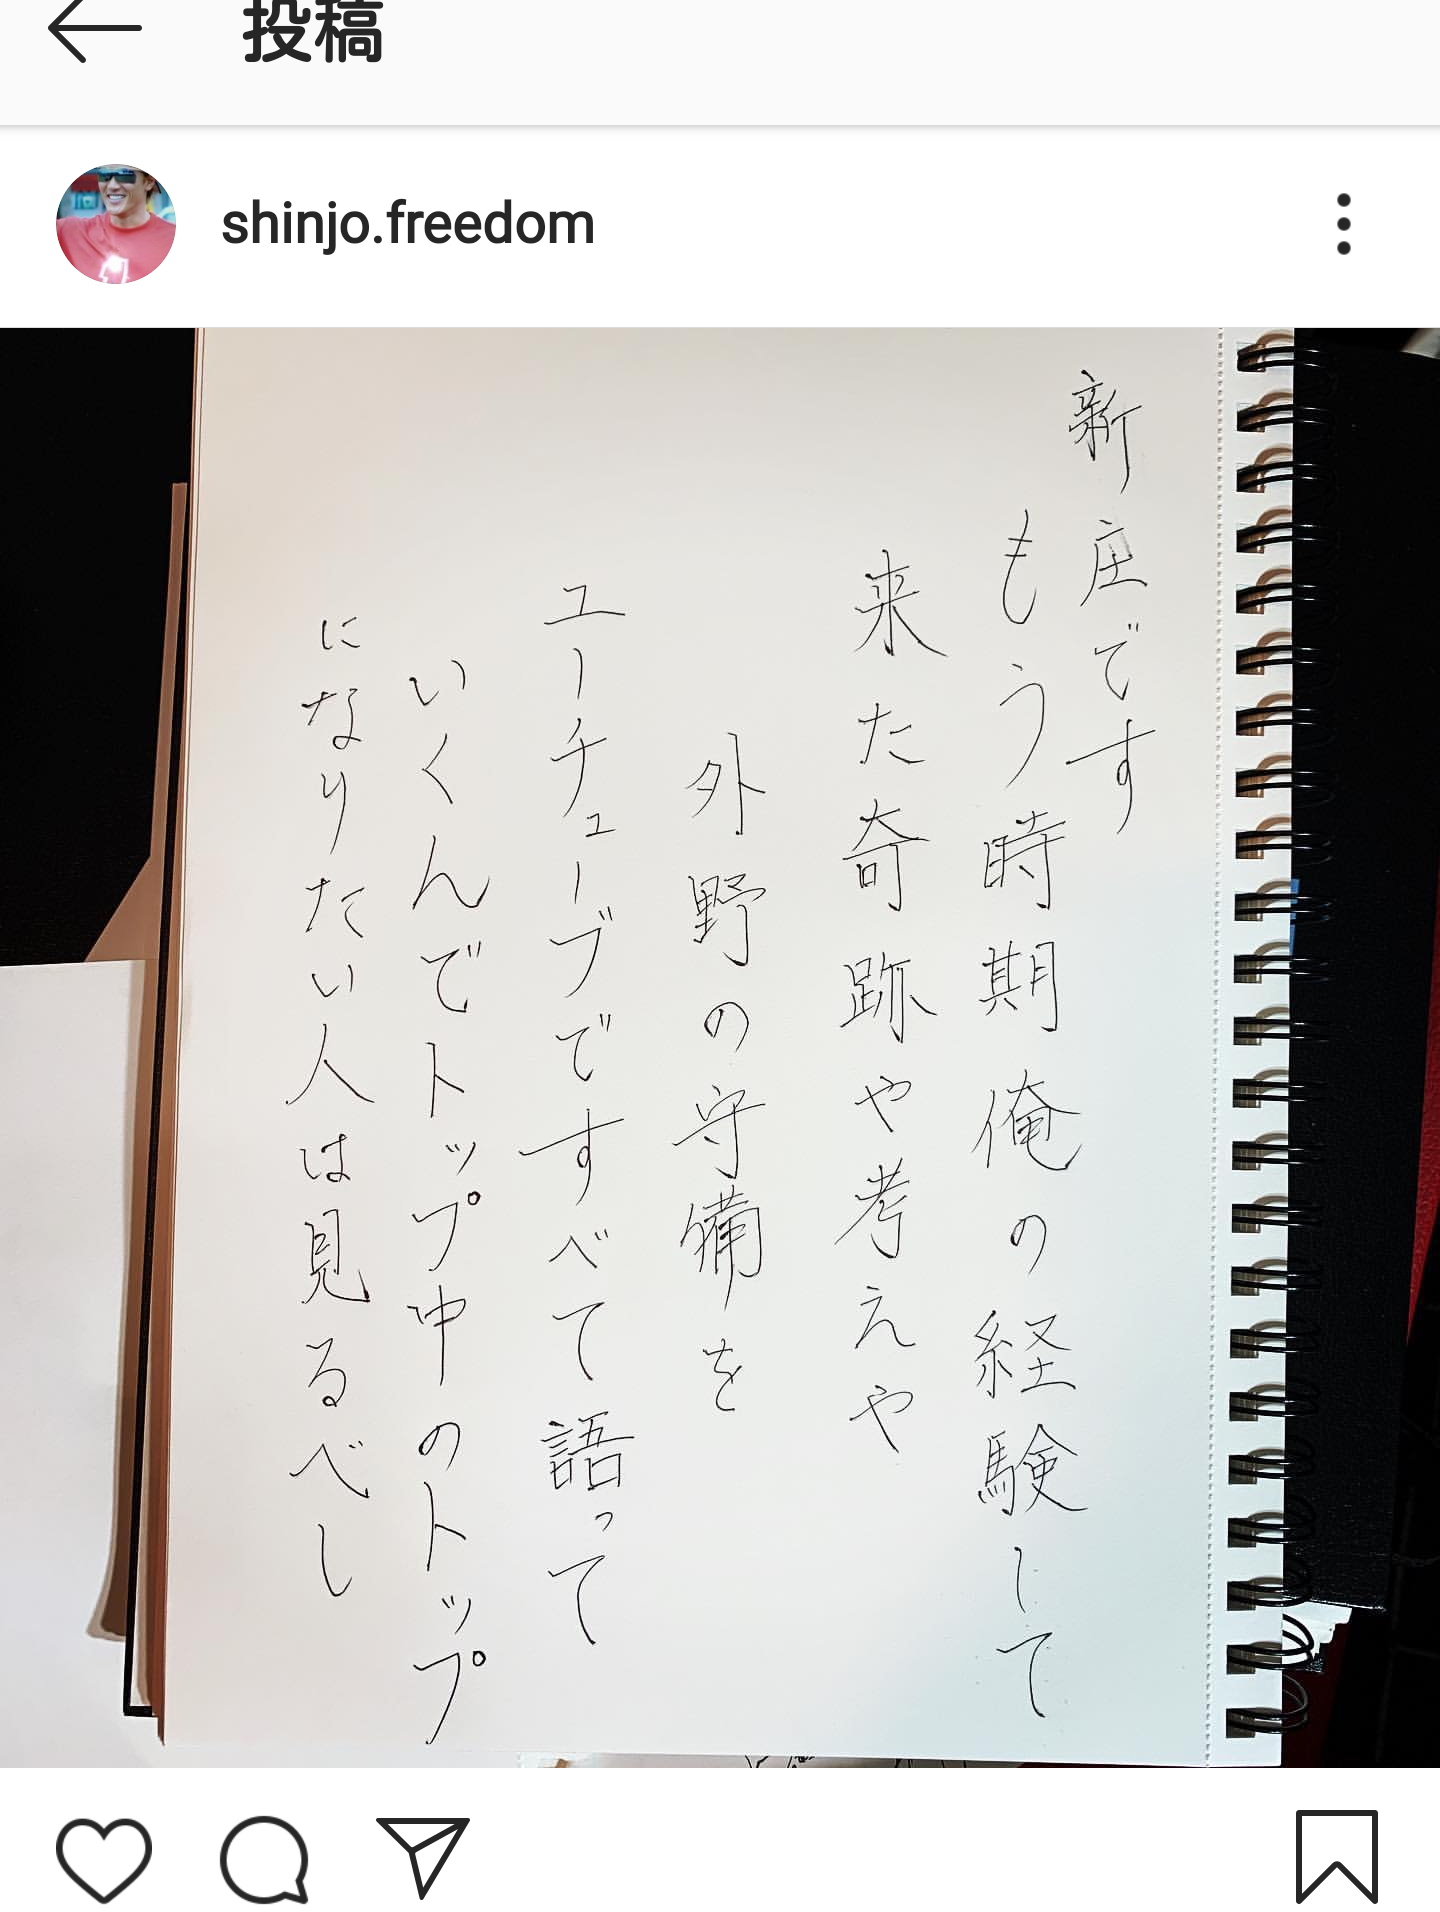 投稿
shinjo.freedom
新庄です
もう時期俺の経験して
来た奇跡や考えや
外野の守備を
ユーチューブですべて語って
いくんでトップ中のトップ
になりたい人は見るべし